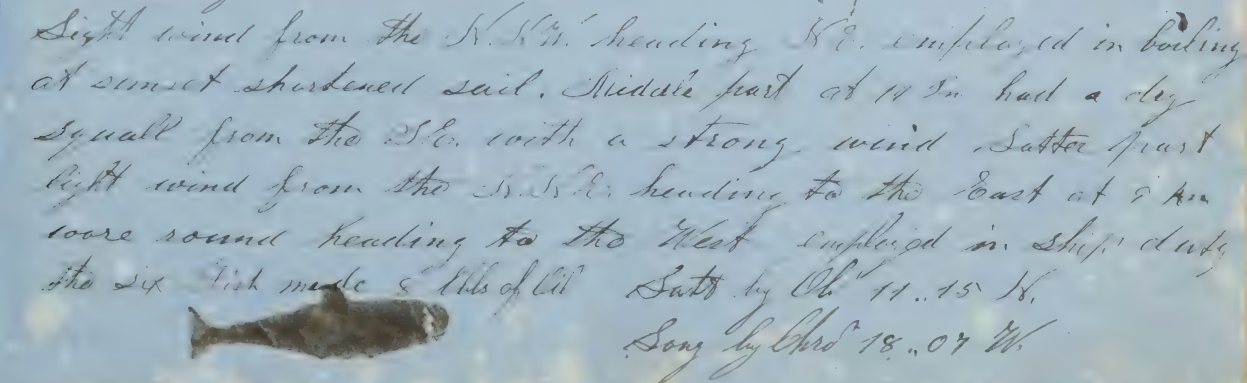 Light wind from the N.N.W. heading N E. employed in boiling
at sunset shortened sail. Middle part at 11 Pm had a dry
squall from the with a strong wind Latter part
light wind from the N.N.E. heading to the East at Am
wore round heading to the West employed in ships duty
the six fish made Bbls of Oil Latt by Ob 11..15 N.
Long by Chro 18..07 W.